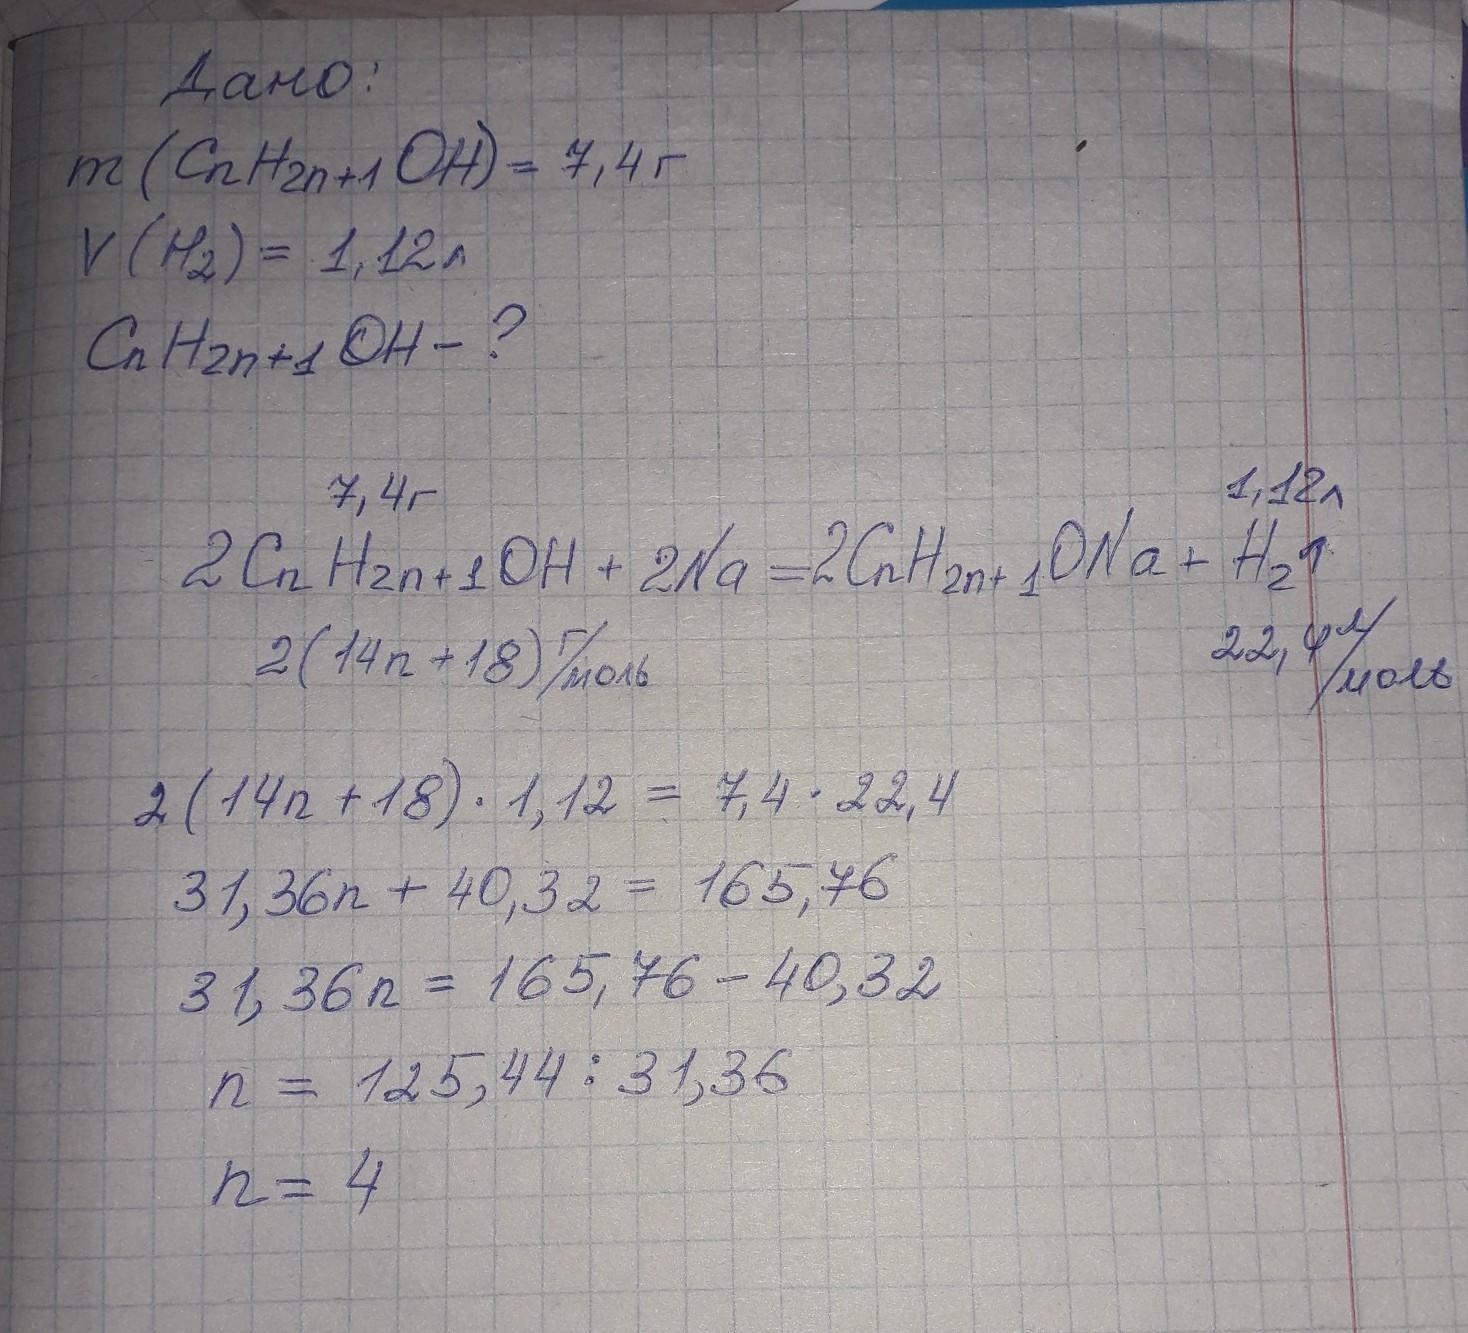 Дано:
m(CnH2n+1OH) = 7,4г
V(H2) = 1,12л
CnH2n+1OH - ?
7,4г 1,12л
2CnH2n+1OH + 2Na = 2CnH2n+1ONa + H2↑
2(14n+18) г/моль 22,4 л/моль
2(14n+18)·1,12 = 7,4·22,4
31,36n + 40,32 = 165,76
31,36n = 165,76 - 40,32
n = 125,44 : 31,36
n = 4